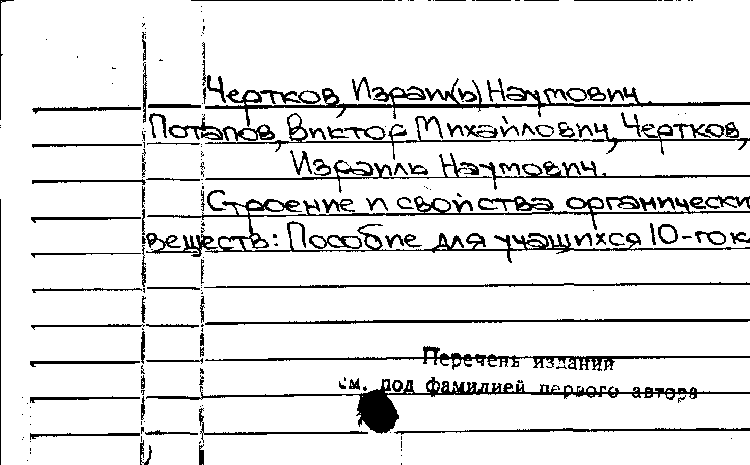 Чертков, Израил(ь) Наумович.
Потапов, Виктор Михайлович, Чертков,
Израиль Наумович.
Строение и свойства органически
веществ: Пособие для учащихся 10-го к
Перечень изданий
см. под фамилией первого автора